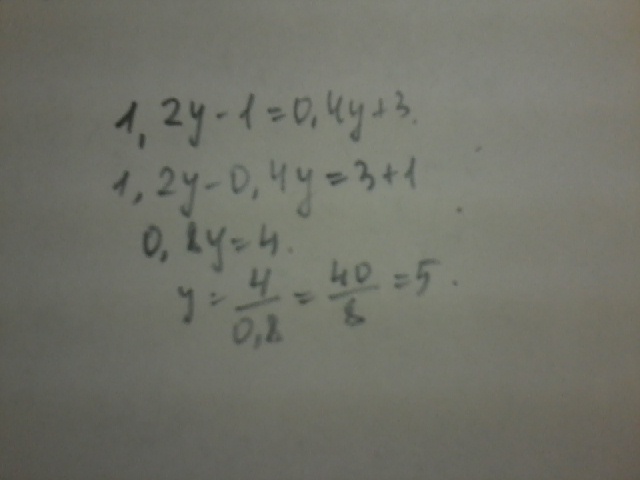 1,2y-1=0,4y+3.
1,2y-0,4y=3+1
0,8y=4.
y=4/0,8=40/8=5.